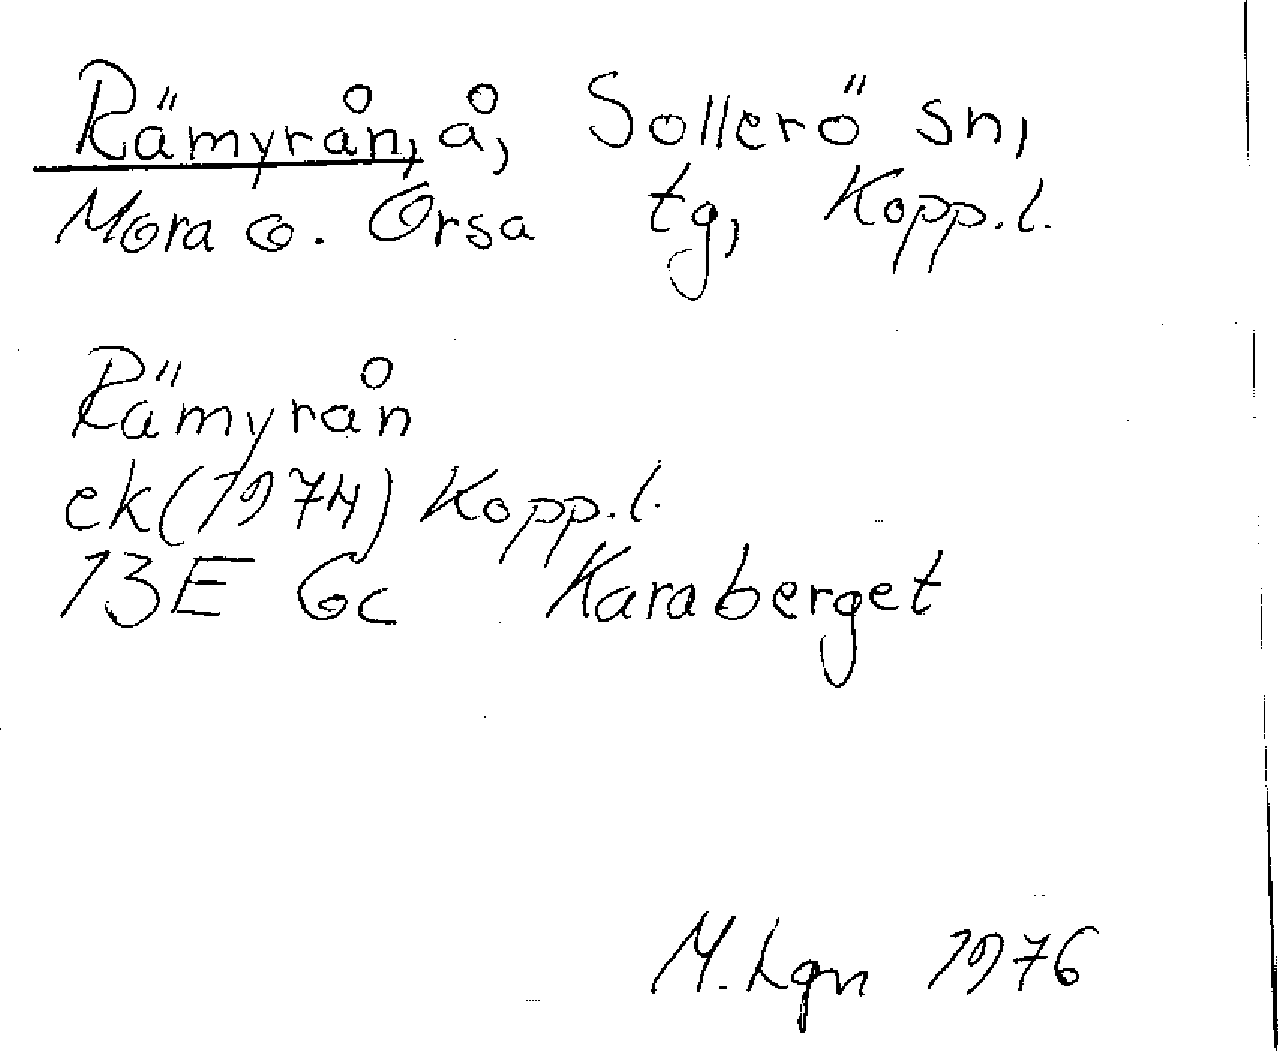 Rämyrån, å, Sollerö sn,
Mora o. Orsa tg, Kopp.l.
Rämyrån
ek (1974) Kopp.l.
13E Gc Karaberget
M. Lgn 1976